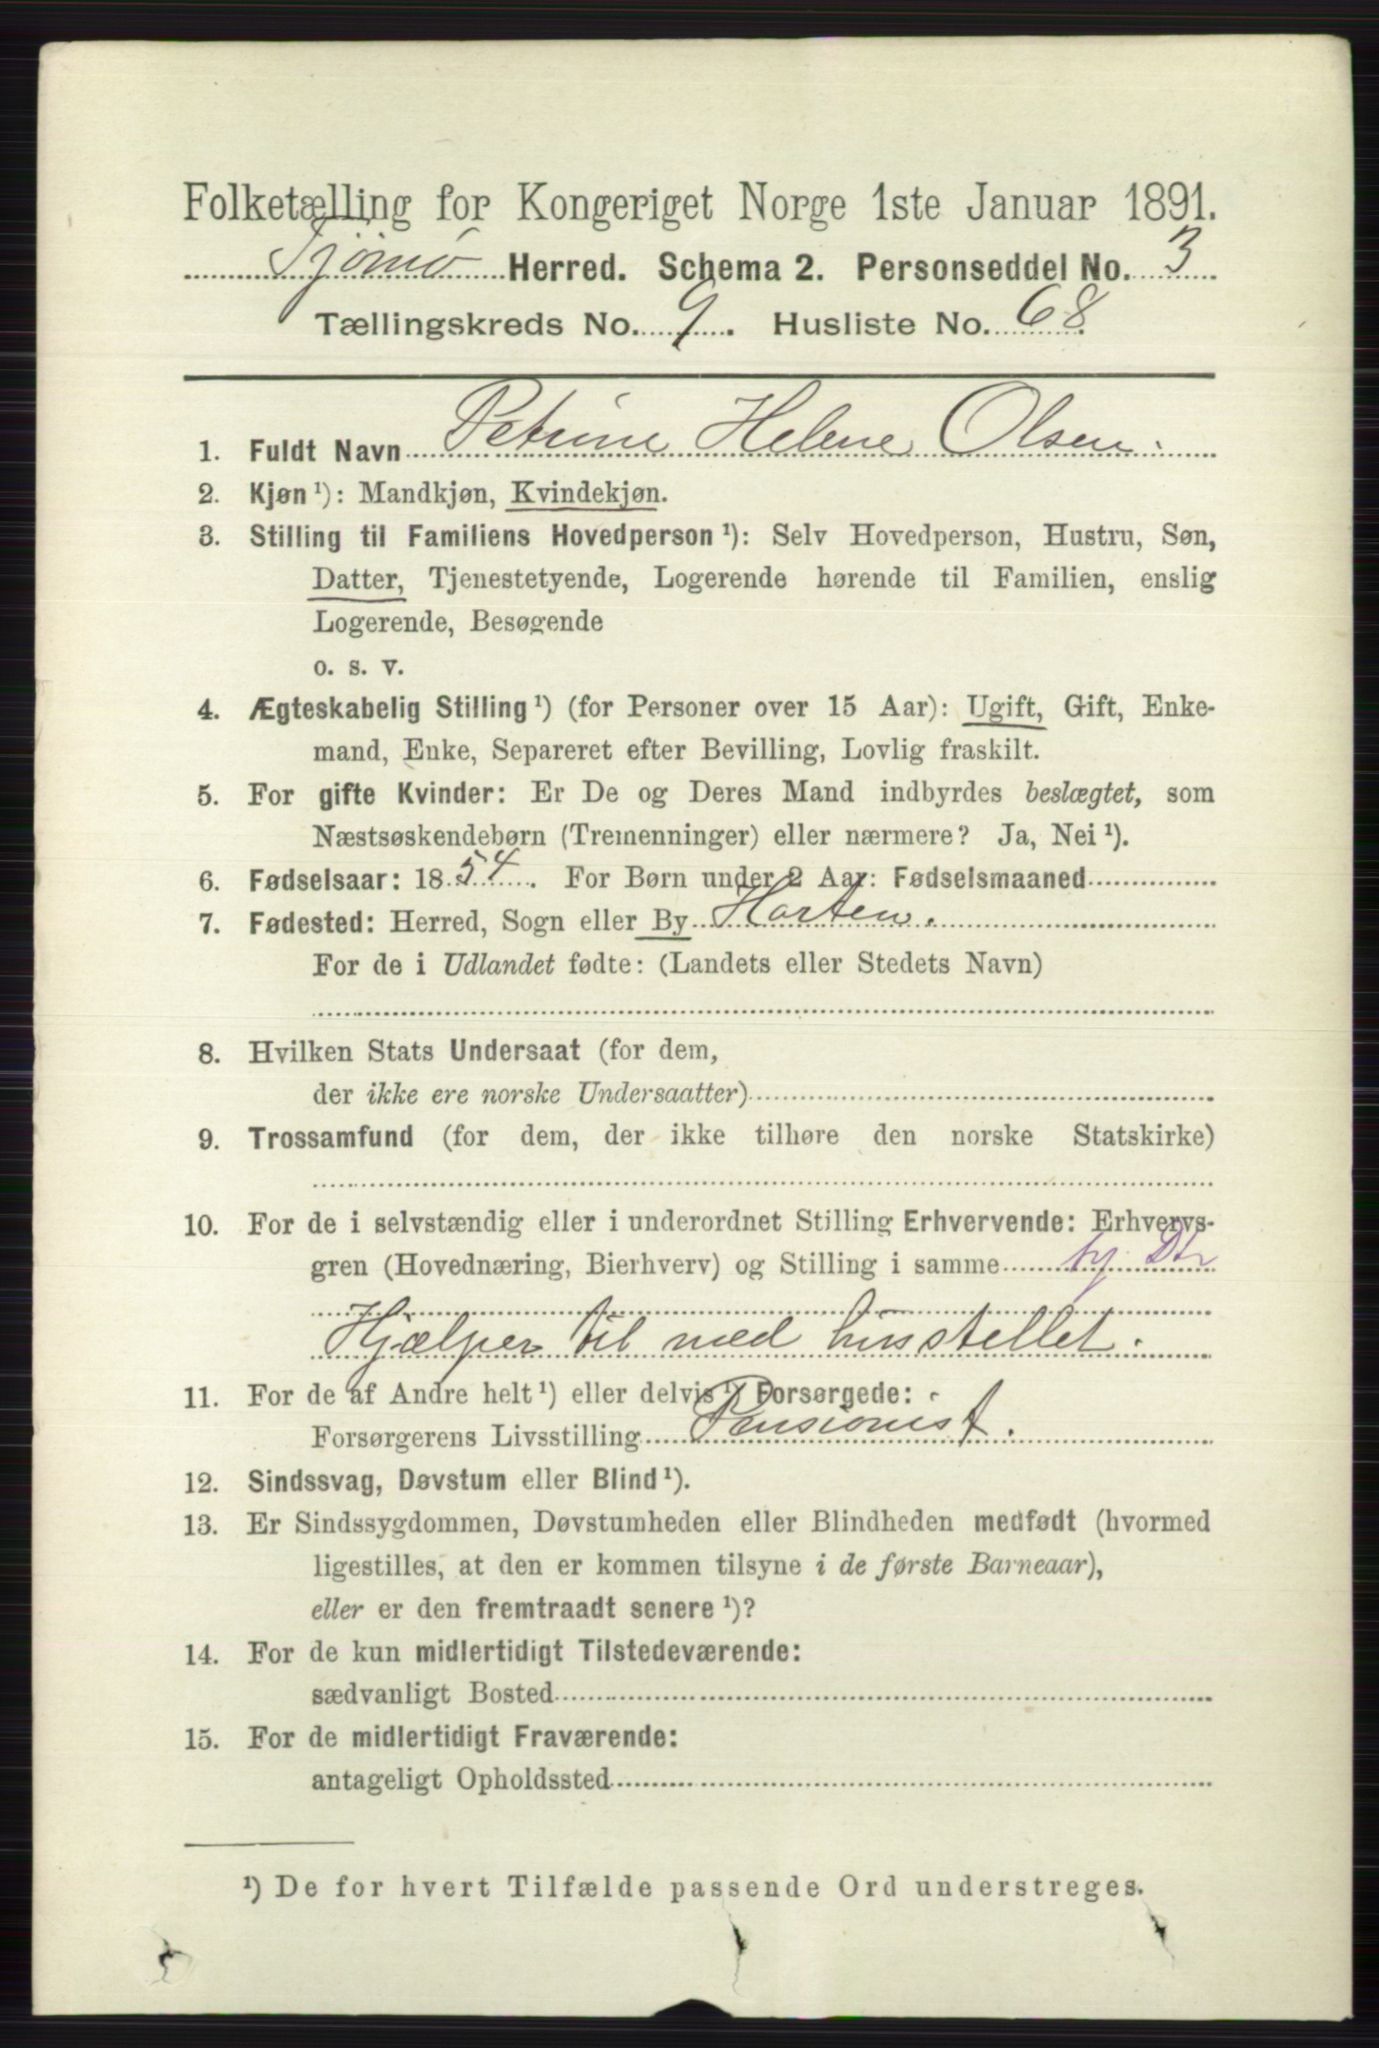 Folketælling for Kongeriget Norge 1ste Januar 1891.
Tjømø Herred. Schema 2. Personseddel No. 3
Tællingskreds No. 9. Husliste No. 68
1. Fuldt Navn Petrine Helene Olsen.
2. Kjøn ¹): Mandkjøn, Kvindekjøn.
3. Stilling til Familiens Hovedperson ¹): Selv Hovedperson, Hustru, Søn,
Datter, Tjenestetyende, Logerende hørende til Familien, enslig
Logerende, Besøgende
o. s. v.
4. Ægteskabelig Stilling ¹) (for Personer over 15 Aar): Ugift, Gift, Enke-
mand, Enke, Separeret efter Bevilling, Lovlig fraskilt.
5. For gifte Kvinder: Er De og Deres Mand indbyrdes beslægtet, som
Næstsøskendebørn (Tremenninger) eller nærmere? Ja, Nei ¹).
6. Fødselsaar: 1854. For Børn under 2 Aar: Fødselsmaaned
7. Fødested: Herred, Sogn eller By Horten.
For de i Udlandet fødte: (Landets eller Stedets Navn)
8. Hvilken Stats Undersaat (for dem,
der ikke ere norske Undersaatter)
9. Trossamfund (for dem, der ikke tilhøre den norske Statskirke)
10. For de i selvstændig eller i underordnet Stilling Erhvervende: Erhvervs-
gren (Hovednæring, Bierhverv) og Stilling i samme tj. Dtr
Hjælper til med husstellet.
11. For de af Andre helt ¹) eller delvis ¹) Forsørgede:
Forsørgerens Livsstilling Pensionist.
12. Sindssvag, Døvstum eller Blind ¹).
13. Er Sindssygdommen, Døvstumheden eller Blindheden medfødt (hvormed
ligestilles, at den er kommen tilsyne i de første Barneaar),
eller er den fremtraadt senere ¹)?
14. For de kun midlertidigt Tilstedeværende:
sædvanligt Bosted
15. For de midlertidigt Fraværende:
antageligt Opholdssted
¹) De for hvert Tilfælde passende Ord understreges.